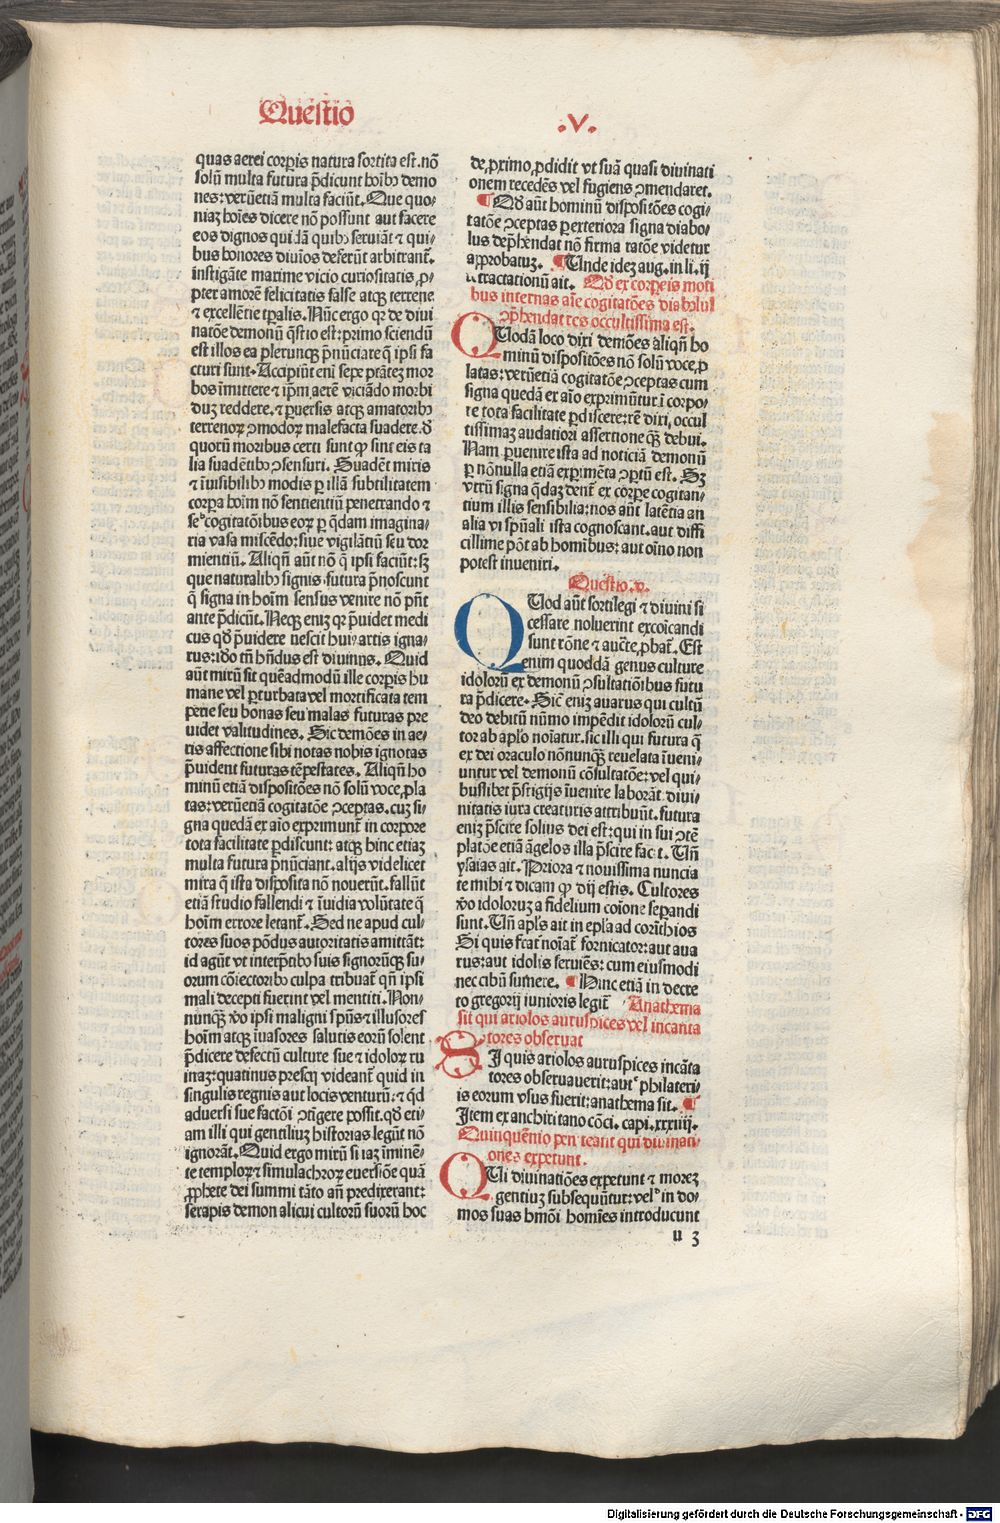 Questio
.V.
quas aerei corꝑis natura sortita est. nõ
solũ multa futura p̃dicunt hoĩbꝰ demo
nes: verũetiã multa faciũt. Que quo⸗
niaz hoĩes dicere nõ possunt aut facere
eos dignos quidã quibꝰ seruiãt ⁊ qui⸗
bus honores diuĩos deferũt arbitrant̃.
instigãte maxime vicio curiositatis, ꝓ⸗
pter amorẽ felicitatis false atqꝫ terrene
⁊ excellẽtie tꝑalis. Nũc ergo qꝛ de diui
natõe demonũ q̃stio est: primo sciendũ
est illos ea plerunqꝫ p̃nũciare q̃ ipsi fa
cturi sunt. Accipiũt eni sepe ptãtez mor
bos ĩmittere ⁊ ip̃m aerẽ viciãdo morbi
duz reddere, ⁊ ꝑuersis atqꝫ amatoribꝰ
terrenoꝝ ꝯmodoꝝ malefacta suadere. d̃
quorũ moribus certi sunt ꝙ sint eis ta
lia suadẽtibꝰ ꝯsensuri. Suadẽt miris
⁊ ĩuisibilibꝰ modis ꝑ illã subtilitatem
corꝑa hoĩm nõ sentientiũ penetrando ⁊
se cogitatõibus eoꝝ ꝑ q̃dam imagina⸗
ria visa miscẽdo: siue vigilãtiũ seu dor
mientiũ. Aliqñ aũt nõ q̃ ipsi faciũt: sꝫ
que naturalibꝰ signis futura p̃noscunt
q̃ signa in hoĩm sensus venire nõ pñt
ante p̃dicũt. Neqꝫ eniz qꝛ p̃uidet medi
cus qd̃ p̃uidere nescit huiꝰ artis igna⸗
rus: iõo tñ hñdus est diuinus. Quid
aũt mirũ sit quẽadmodũ ille corꝑis hu
mane vel ꝑturbata vel mortificata tem
perie seu bonas seu malas futuras pre
uidet valitudines. Sic demões in ae⸗
ris affectione sibi notas nobis ignotas
p̃uident futuras tẽpestates. Aliqñ ho
minũ etiã dispositões nõ solũ voce, ꝓla
tas: verũetiã cogitatõe ꝯceptas. cuz si⸗
gna quedã ex aĩo exprimunt̃ in corpore
tota facilitate ꝑdiscunt: atqꝫ hinc etiaz
multa futura p̃nũciant. alijs videlicet
mira q̃ ista disposita nõ nouerũt. fallũt
etiã studio fallendi ⁊ ĩuidia volũtate q̃
hoĩm errore letant̃. Sed ne apud cul⸗
tores suos põdus autoritatis amittãt:
id agũt vt interp̃tibꝰ suis signorũqꝫ su⸗
orum cõiectoribꝰ culpa tribuat̃ qñ ipsi
mali decepti fuerint vel mentiti. Non⸗
nunqꝫ ꝟo ipsi maligni spũs ⁊ illusores
hoĩm atqꝫ ĩuasores salutis eorũ solent
p̃dicere defectũ culture sue ⁊ idoloꝝ ru
inaz: quatinus prescij videant̃ quid in
singulis regnis aut locis venturũ: ⁊ qd̃
aduersi sue factõi ꝯtigere possit. qd̃ eti⸗
am illi qui gentiliuz historias legũt nõ
ignorãt. Quid ergo mirũ si iaz ĩminẽ⸗
te temploꝝ ⁊ simulachroꝝ euersiõe quã
ꝓphete dei summi tãto añ predixerant:
serapis demon alicui cultorũ suorũ hoc
de, ꝓximo, ꝓdidit vt suã quasi diuinati
onem recedẽs vel fugiens ꝯmendaret.
¶ Qd̃ aũt hominũ dispositões cogi⸗
tatõe ꝯceptas ꝑ exteriora signa diabo⸗
lus dep̃hendat nõ firma ratõe videtur
approbatuz. ¶ Unde idez aug. in li. ij
retractationũ ait. Qd̃ ex corꝑeis moti
bus internas aĩe cogitatões diabolus
ꝯp̃hendat res occultissima est.
QUodã loco dixi demões aliqñ ho
minũ dispositões nõ solũ voce, ꝓ
latas: verũetiã cogitatõe ꝯceptas cum
signa quedã ex aĩo exprimũtur ĩ corpo⸗
re tota facilitate ꝑdiscere: rẽ dixi, occul
tissimaz audatiori assertione qꝫ̃ debui.
Nam ꝑuenire ista ad noticiã demonũ
ꝑ nõnulla etiã exꝑimẽta ꝯꝑtũ est. Sꝫ
vtrũ signa q̃daz dent̃ ex corꝑe cogitan⸗
tium illis sensibilia: nos aũt latẽtia an
alia vi spũali ista cognoscant. aut diffi
cillime põt ab homĩbus: aut oĩno non
potest inueniri.
Questio. v.
QUod aũt sortilegi ⁊ diuini si
cessare noluerint excõicandi
sunt rõne ⁊ aucte, ꝓbat̃. Est
enim quoddã genus culture
idolorũ ex demonũ ꝯsultatiõibus futu
ra p̃dicere. Sic̃ eniz auarus qui cultũ
deo debitũ nũmo impẽdit idolorũ cul⸗
tor ab aplõ noĩatur. sic illi qui futura q̃
ex dei oraculo nõnunqꝫ̃ reuelata ĩueni⸗
untur vel demonũ cõsultatõe: vel qui⸗
buslibet p̃stigijs ĩuenire laborãt diui⸗
nitatis iura creaturis attribuũt. futura
eniz p̃scire solius dei est: qui in sui ꝯtẽ
platõe etiã ãgelos illa p̃scire facit. Uñ
ysaias ait. Priora ⁊ nouissima nuncia
te mihi ⁊ dicam ꝙ dij estis. Cultores
ꝟo idoloruz a fidelium cõione seꝑandi
sunt. Uñ apl̃s ait in epl̃a ad corĩthios
Si quis frat̃ noĩat̃ fornicator: aut aua
rus: aut idolis seruiẽs: cum eiusmodi
nec cibũ sumere. ¶ Hinc etiã in decre
to gregorij iunioris legit̃ Anathema
sit qui ariolos auruspices vel incanta
tores obseruat
SI quis ariolos auruspices incãta
tores obseruauerit: aut philateri⸗
is eorum vsus fuerit: anathema sit. ¶
Item ex anchiritano cõci. capi. xxiiij.
Quinquẽnio peniteant qui diuinati⸗
ones expetunt.
QUi diuinatiões expetunt ⁊ morez
gentiuz subsequũtur: vel in do⸗
mos suas hmõi homĩes introducunt
u 3
Digitalisierung gefördert durch die Deutsche Forschungsgemeinschaft - DFG